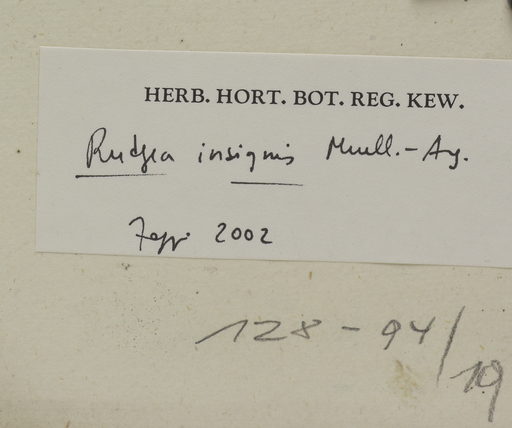 HERB. HORT. BOT. REG. KEW.
Rudgea insignis Muell.-Arg.
Zappi 2002
128-94/19